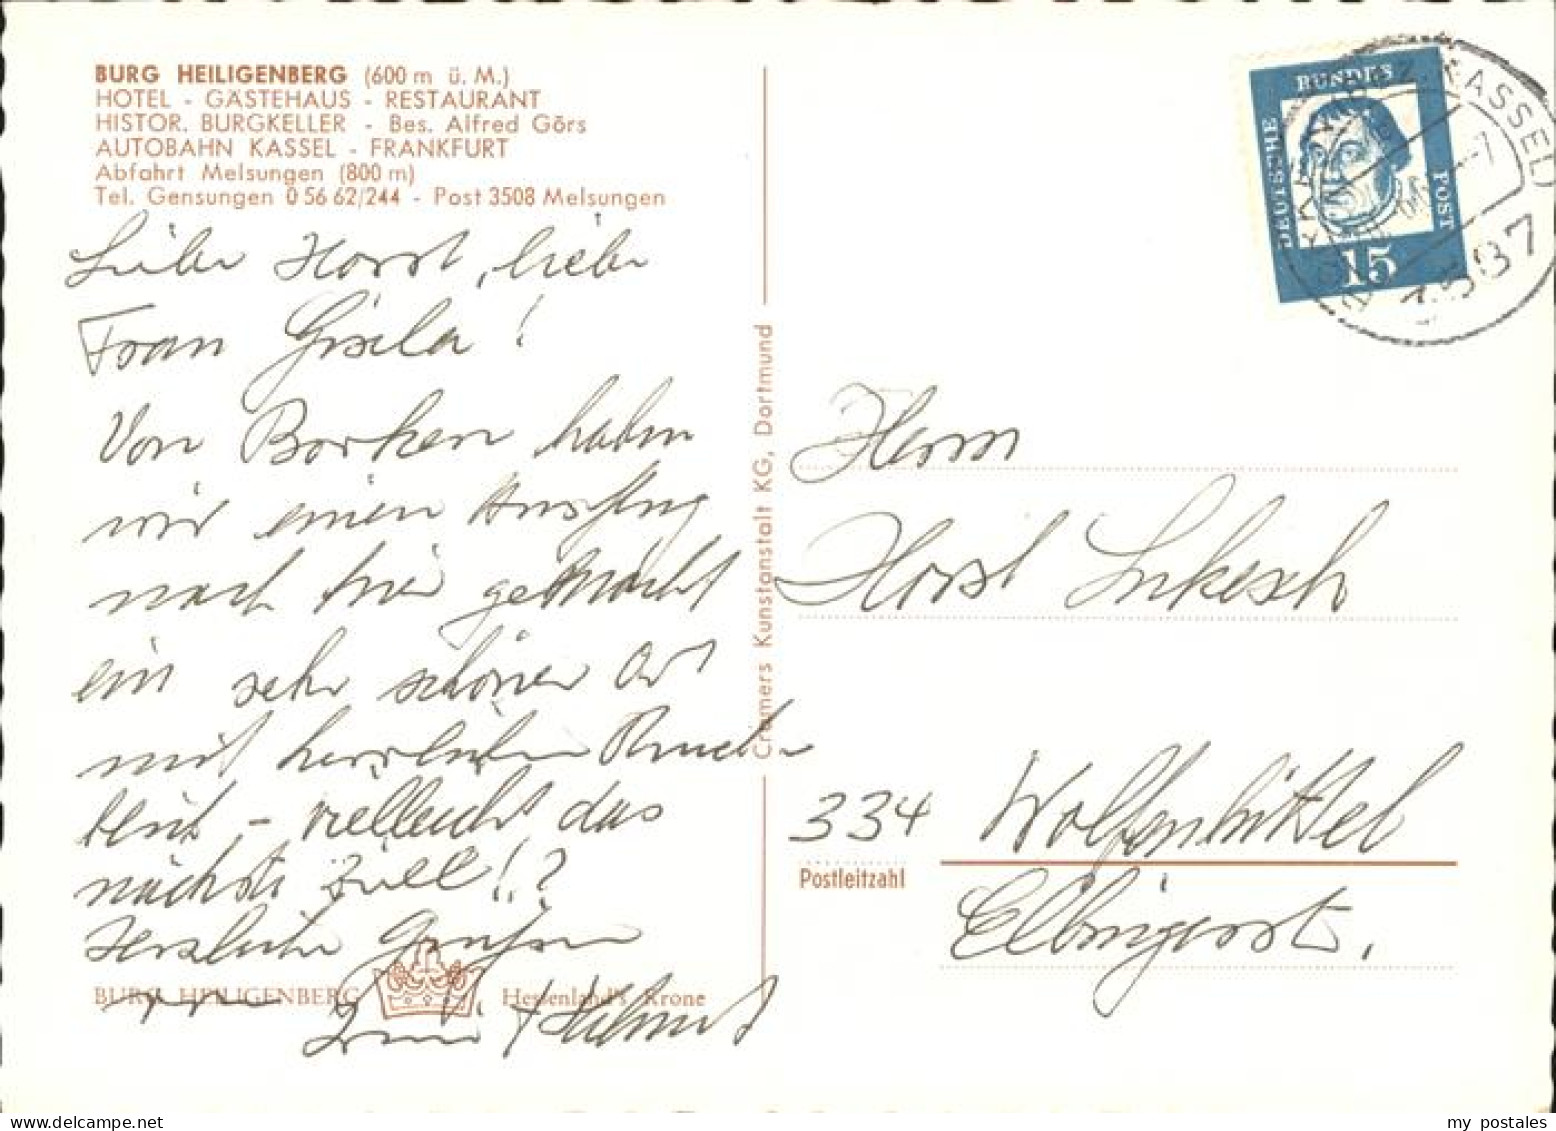 BURG HEILIGENBERG (600 m ü. M.)
HOTEL - GÄSTEHAUS - RESTAURANT
HISTOR. BURGKELLER - Bes. Alfred Görs
AUTOBAHN KASSEL - FRANKFURT
Abfahrt Melsungen (800 m)
Tel. Gensungen 0 56 62/244 - Post 3508 Melsungen
Lieber Horst, liebe
Frau Gisela!
Von Borken haben
wir einen Ausflug
nach hier gemacht
ein sehr schöner Ort
mit herrlichem
- vielleicht das
nächste Ziel!?
Herzliche Grüße
von
+ Helmut
BURG HEILIGENBERG Hessenland's Krone
Cramers Kunstanstalt KG, Dortmund
DEUTSCHE BUNDES POST
15
KASSEL)
3587
Herrn
Horst Lukesch
334 Wolfenbüttel
Postleitzahl
Elbingerstr.
my postales